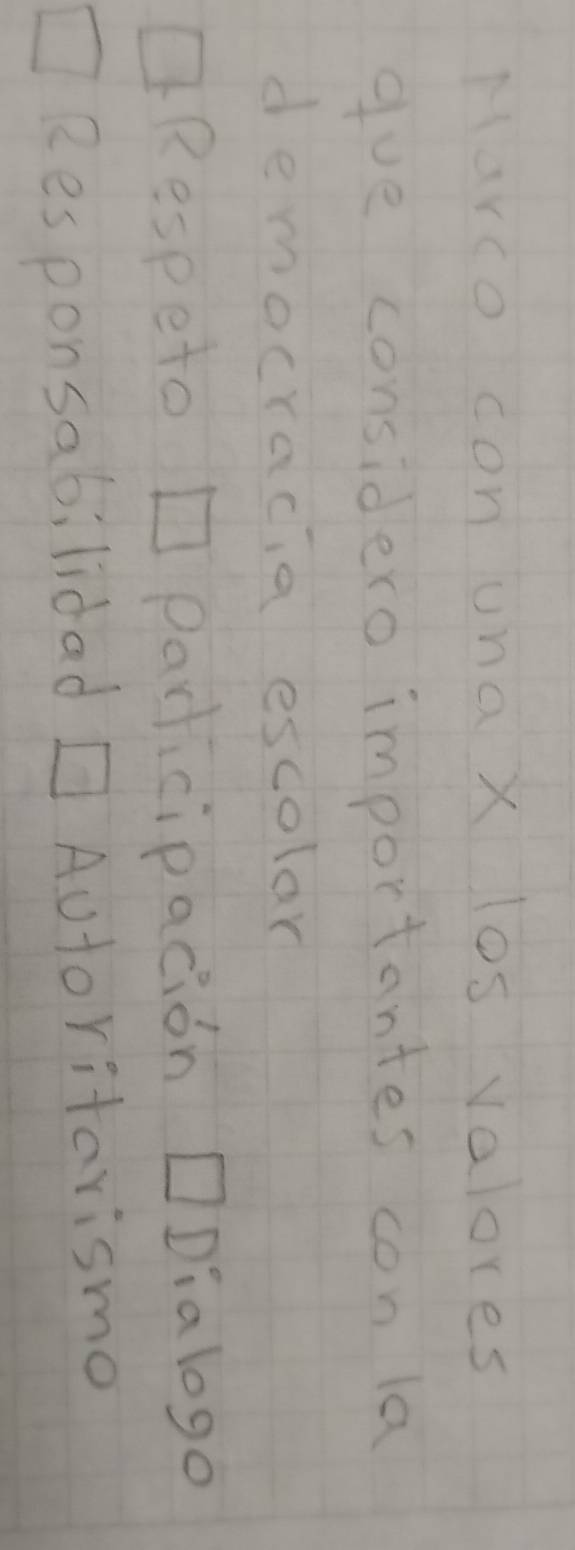 Marco con una X los valores
que considero importantes con la
democracia escolar
□ Respeto □ Participación □ Dialogo
□ Responsabilidad □ Autoritarismo